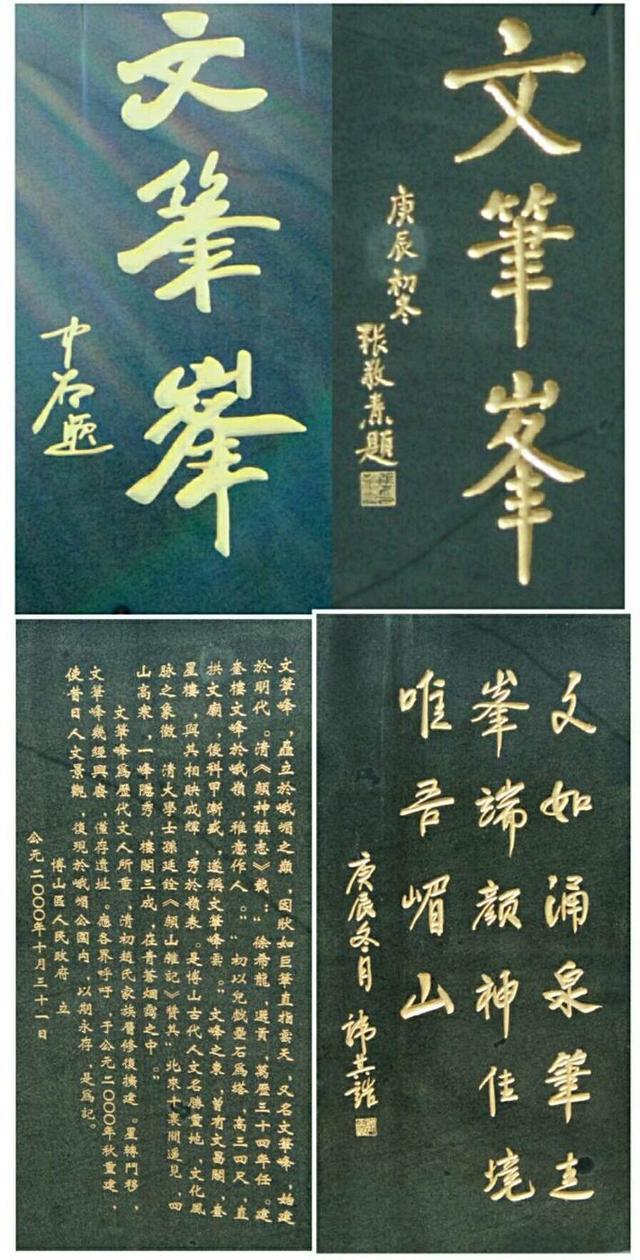 文筆峯
中石題
文筆峯
庚辰初冬
張敬燾題
文筆峰，矗立於峨嵋之巔，因狀如巨筆直指雲天，又名文筆峰，始建
於明代。清《顏神鎮志》載：“徐希龍，選貢，萬歷三十四年任。建
奎樓文峰於峨嶺，雅意作人。”“初以兒戲壘石爲塔，高三四尺，直
拱文廟，後科甲漸盛，遂稱文筆峰雲。”文峰之東，曾有文昌閣，奎
星樓，與其相映成輝，秀於嶺表。是博山古代人文名勝重地，文化風
脉之象徵。清大學士孫廷銓《顏山雜記》贊其“北來十裏間遥見，四
山高寒，一峰隱秀，樓閣三成，在青蒼烟靄之中。”
文筆峰爲歷代文人所重，清初趙氏家族屢修復擴建。星轉鬥移，
文筆峰幾經興廢，僅存遺址。應各界呼吁，于公元二000年秋重建，
使昔日人文景觀，復現於峨嵋公園内，以期永存，是爲記。
博山區人民政府 立
公元二000年十月三十一日
文如涌泉筆走
峯端顏神佳境
唯吾嵋山
庚辰冬月